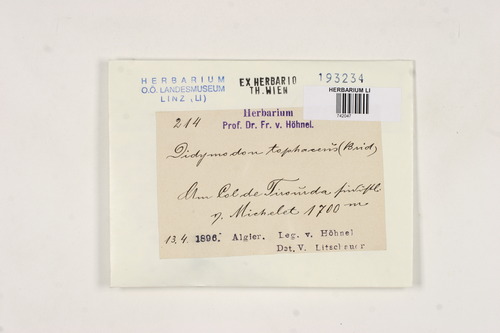 HERBARIUM
O.Ö. LANDESMUSEUM
LINZ (LI)
EX HERBARIO
TH. WIEN
193234
HERBARIUM LI
742047
Herbarium
Prof. Dr. Fr. v. Höhnel.
214
Didymodon tophaceus (Brid)
Am Col de Tirourda südöstl.
v. Michelet 1700 m
13.4. 1896. Algier. Leg. v. Höhnel
Det. V. Litschauer